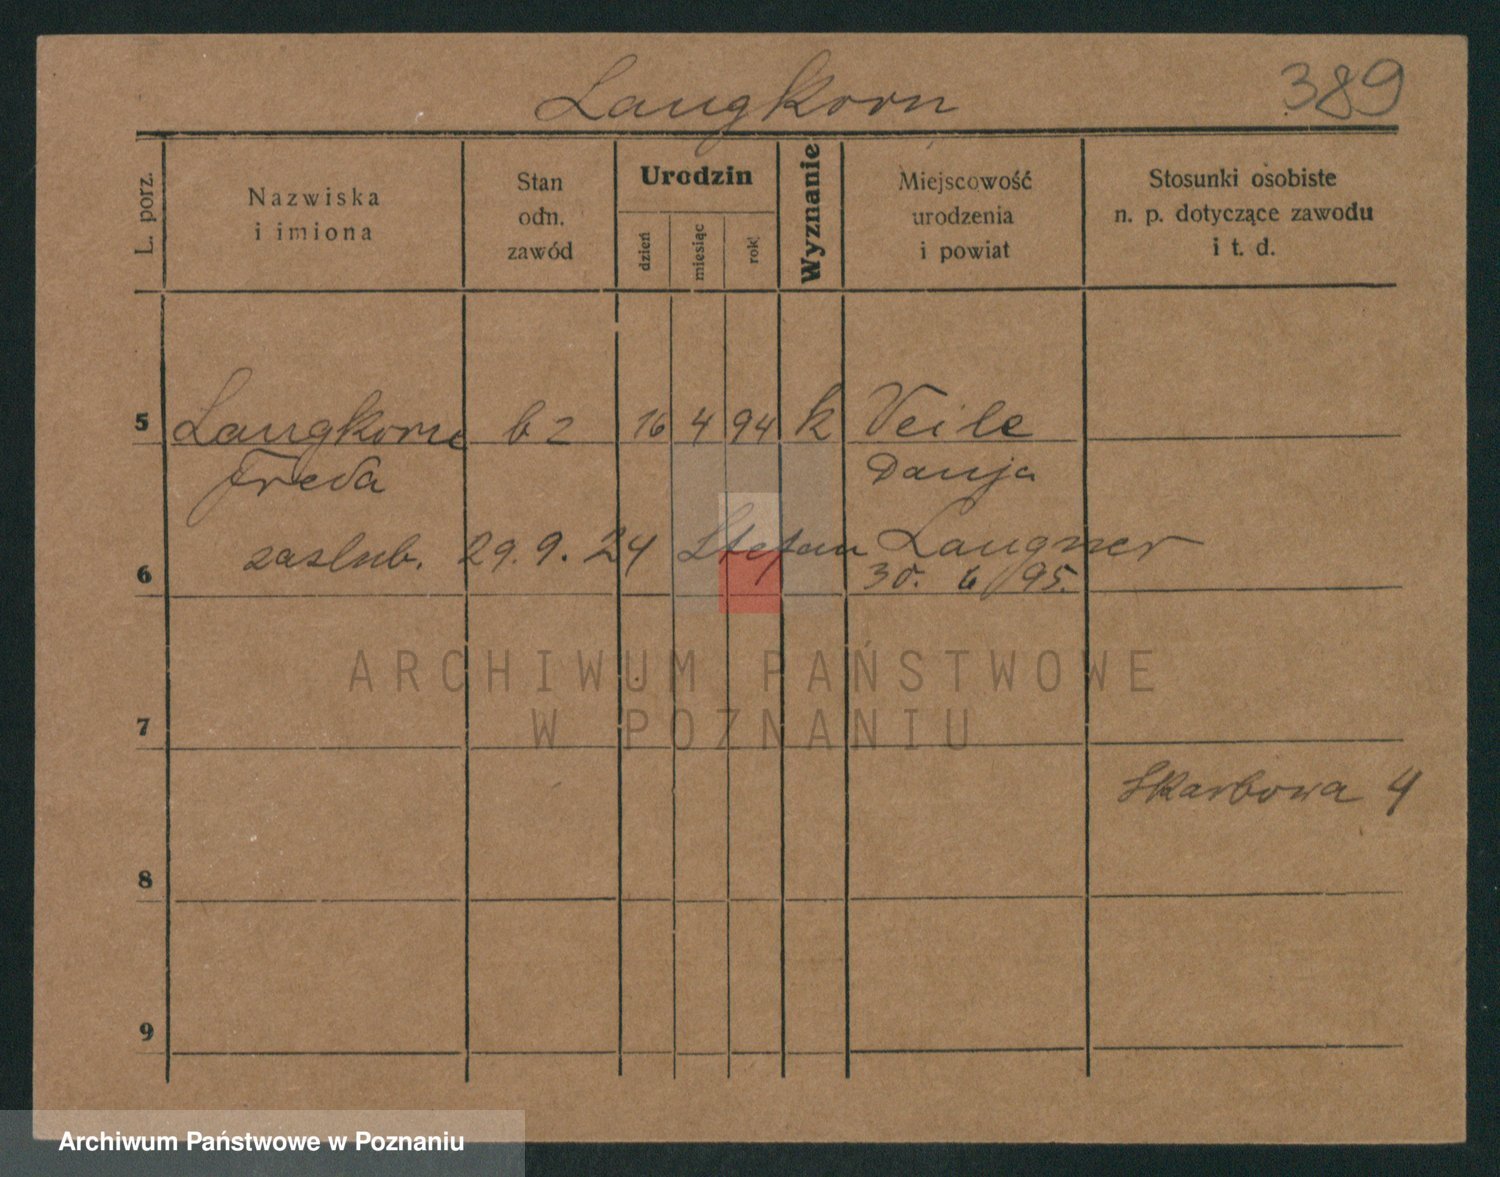 Langkorn 389
L. porz.
Nazwiska
i imiona
Stan
odn.
zawód
Urodzin
dzień
miesiąc
rok
Wyznanie
Miejscowość
urodzenia
i powiat
Stosunki osobiste
n. p. dotyczące zawodu
i t. d.
5 Langkorn b z 16 4 94 k Veile
Freda Danja
6 zaslub. 29. 9. 24 Stefan Langner
30. 6 95.
ARCHIWUM PAŃSTWOWE
W POZNANIU
7
Skarbowa 4
8
9
Archiwum Państwowe w Poznaniu